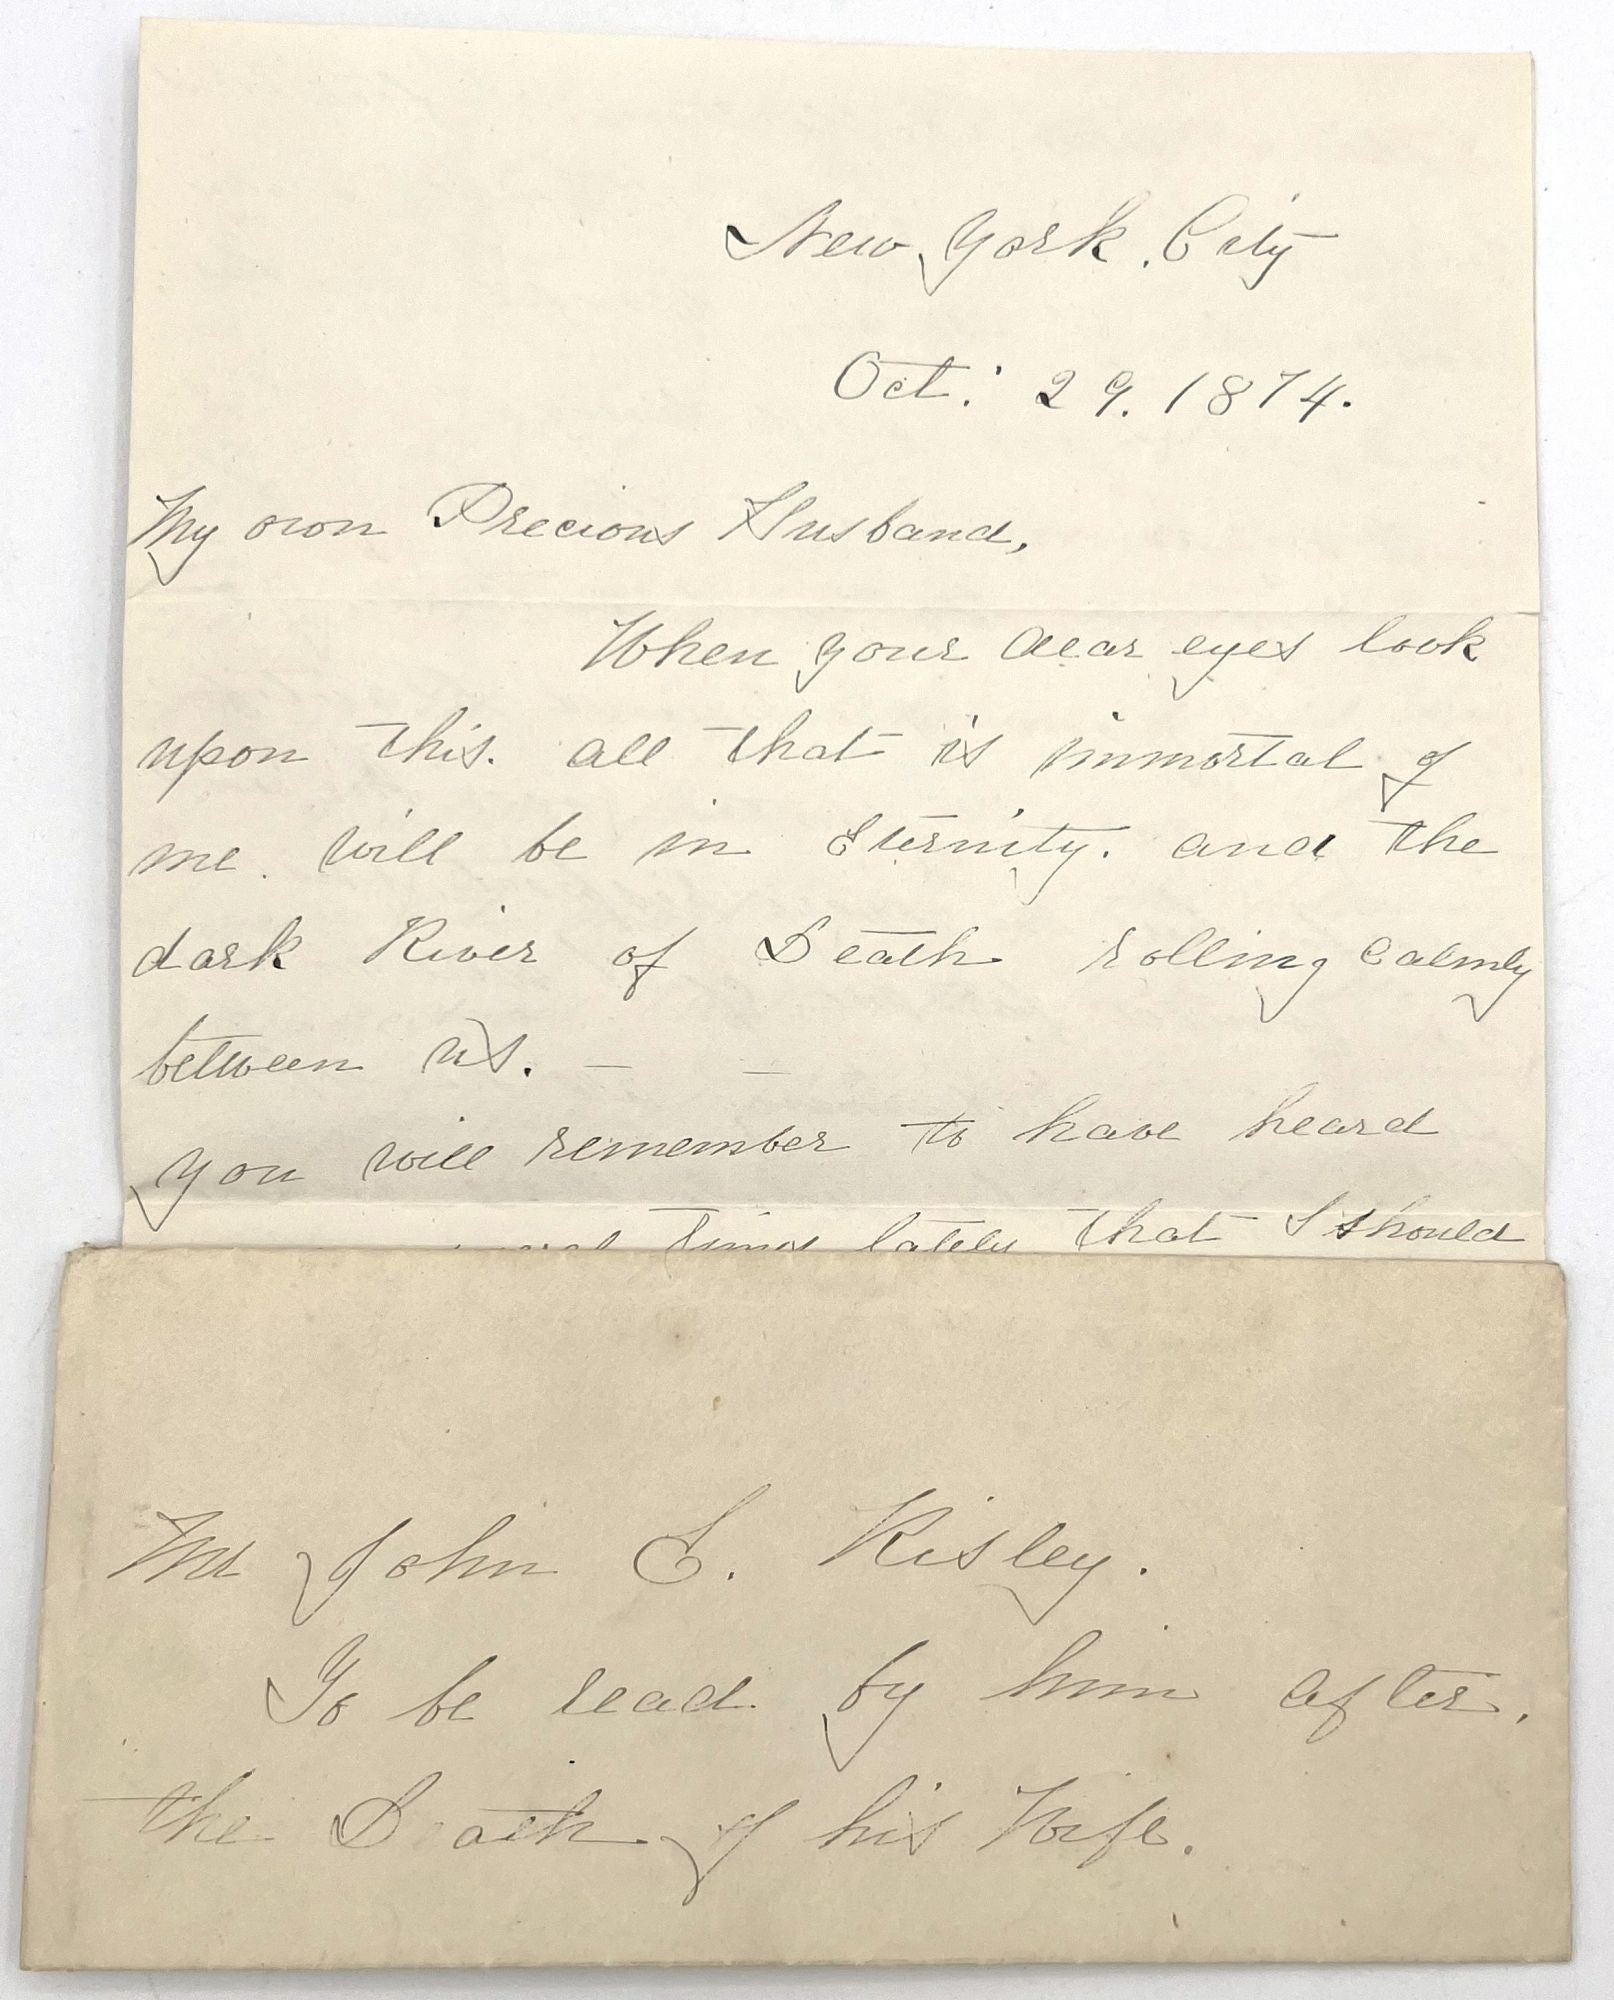 New York. City
Oct: 29. 1874.
My own Precious Husband,
When your dear eyes look
upon this. all that is immortal of
me. will be in Eternity. and the
dark River of Death rolling calmly
between us. — —
you will remember to have heard
times lately that I should
Mr John S. Risley.
To be read by him after.
the Death of his Wife.